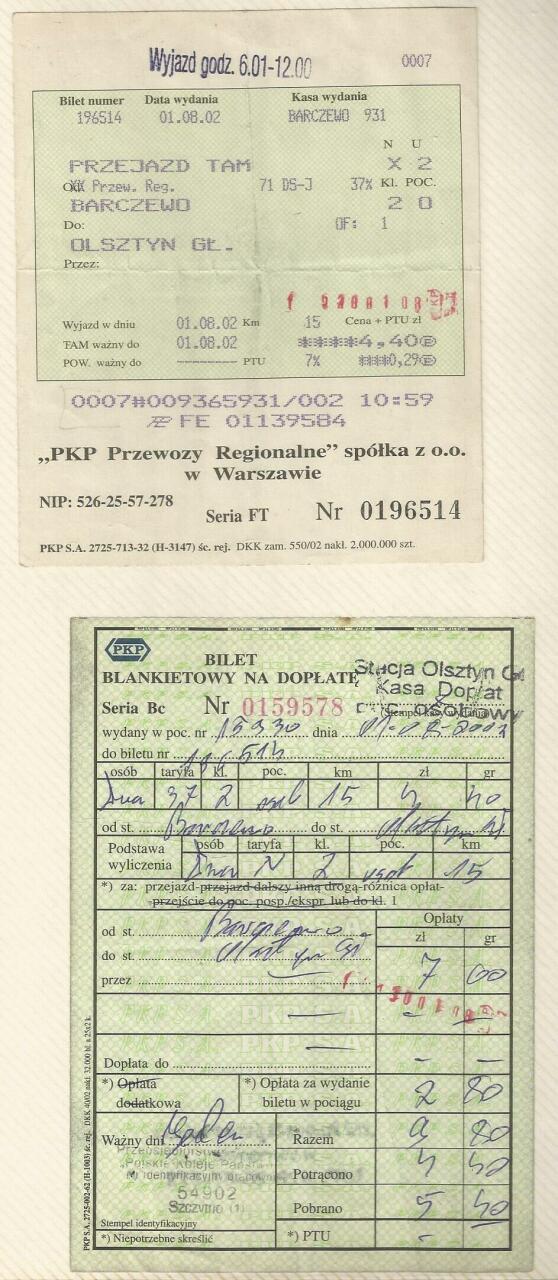 Wyjazd godz. 6.01-12.00
0007
Bilet numer Data wydania Kasa wydania
196514 01.08.02 BARCZEWO 931
N U
PRZEJAZD TAM X 2
Przew. Reg. 71 DS-J 37% Kl. POC.
BARCZEWO 2 0
Do: OF: 1
OLSZTYN GŁ.
Przez:
Wyjazd w dniu 01.08.02 Km 15 Cena + PTU zł
TAM ważny do 01.08.02 ****4,40
POW. ważny do -------- PTU 7% ***0,29
0007#009365931/002 10:59
FE 01139584
„PKP Przewozy Regionalne” spółka z o.o.
w Warszawie
NIP: 526-25-57-278
Seria FT Nr 0196514
PKP S.A. 2725-713-32 (H-3147) śc. rej. DKK zam. 550/02 nakł. 2.000.000 szt.
PKP
BILET
BLANKIETOWY NA DOPŁATĘ
Stacja Olsztyn Gł
Kasa Dopłat
Seria Bc Nr 0159578
wydany w poc. nr 15930 dnia
do biletu nr 196514
osób taryfa kl. poc. km zł gr
Dwa 37 2 osob 15 4 40
od st. Barczewo do st. Olsztyn Gł
Podstawa wyliczenia
osób taryfa kl. poc. km
Dwa N 2 osob 15
*) za: przejazd-przejazd dalszy inną drogą-różnica opłat-
przejście do poc. posp./ekspr. lub do kl. 1
Opłaty
od st. Barczewo zł gr
do st. Olsztyn Gł 7 00
przez
Dopłata do - -
*) Opłata dodatkowa
*) Opłata za wydanie biletu w pociągu 2 80
Ważny dni Razem 9 80
Przedsiębiorstwo
„Polskie Koleje Państw
Nr identyfikacyjny pracownika
54902
Szczytno (1)
Potrącono 4 40
Pobrano 5 40
Stempel identyfikacyjny
*) Niepotrzebne skreślić *) PTU -
PKP S.A. 2725-002-62 (H-1003) śc. rej. DKK 40/02 nakł. 32.000 bl. a 25x2 k.